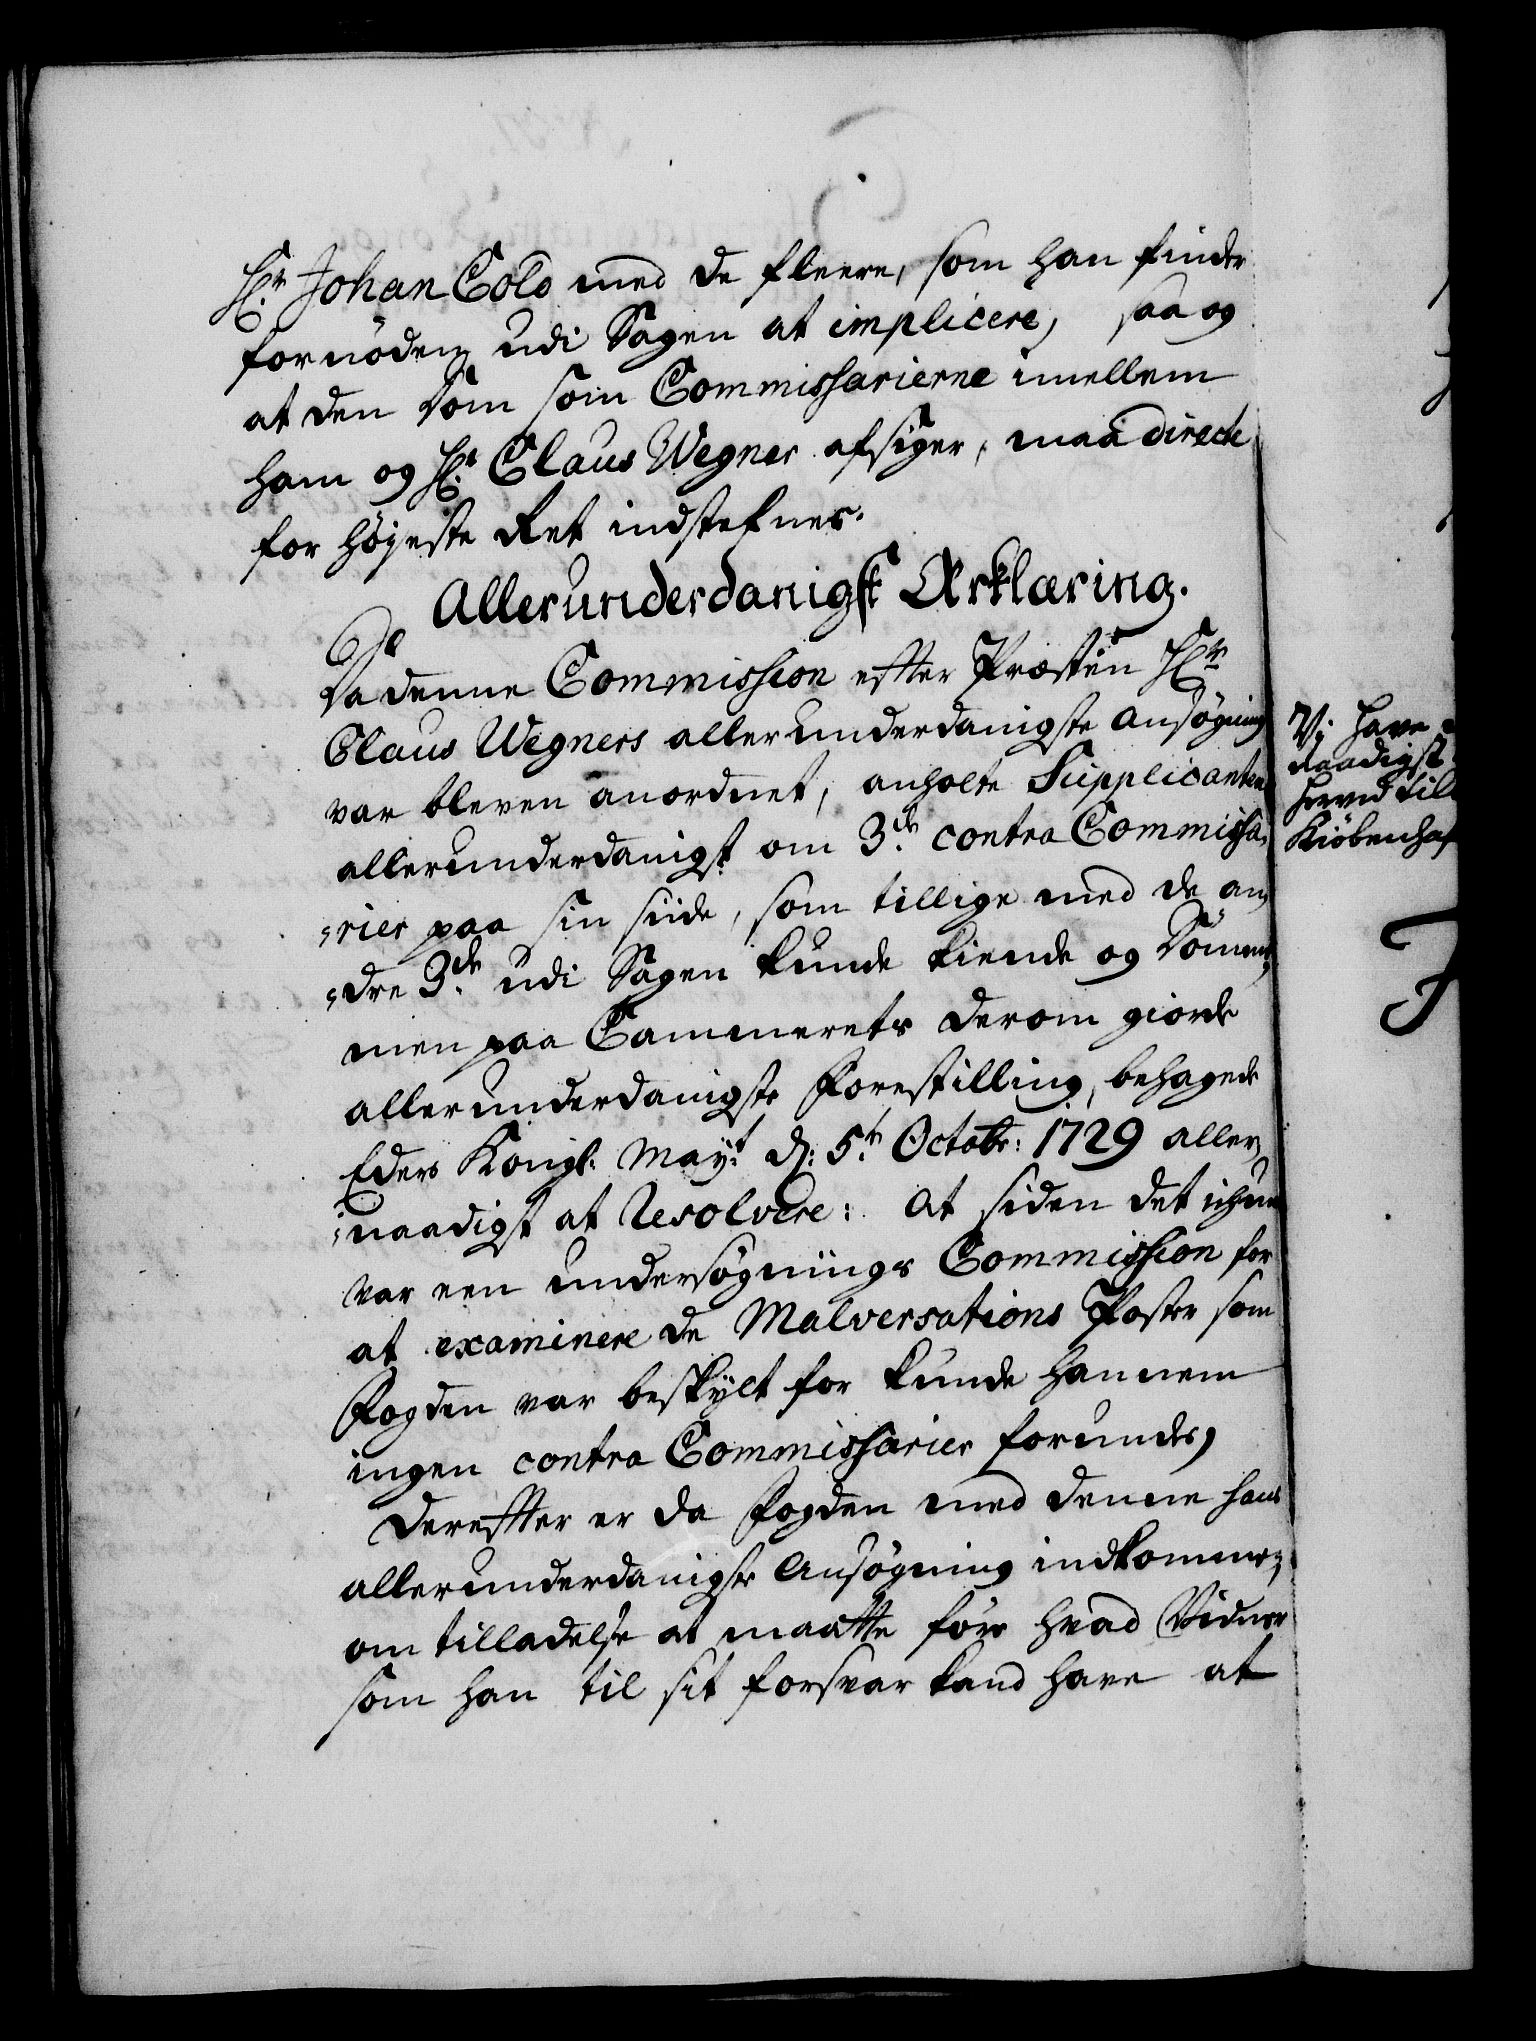 Hr. Johan Cold med de fleere, som han finder
fornöden udi Sagen at implicere, saa og
at den dom som Commissarierne imellem
ham og Hr. Claus Wegner afsiger, maa directe
for höyeste Ret indstefnes.
Allerunderdanigst Erklæring.
Da denne Commission efter Præsten Hr.
Claus Wegners allerunderdanigste ansøgning
var bleven anordnet, anholte Supplicanten
allerunderdanigst om 3de contra Commissa,
,rier paa sin siide, som tillige med de an,
,dre 3de udi Sagen kunde kiende og dömme,
men paa Cammerets derom giorde
allerunderdanigste Forestilling, behagede
Eders Kongl: May:t d: 5te Octobr: 1729 aller,
,naadigst at Resolvere: At siden det ichun
var een undersøgnings Commission for
at examinere de Malversations Poster som
Fogden var beskylt for kunde hannem
ingen contra Commissarier forundes,
Derefter er da Fogden med denne hans
allerunderdanigste Ansøgning indkommen,
om tilladelse at maatte före hvad Vidner
som han til sit forsvar kand have at
Vi have
naadigst
hermed till
Kiöbenhaf